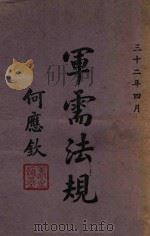 三十二年四月
軍需法規
何應欽
mtoou.info